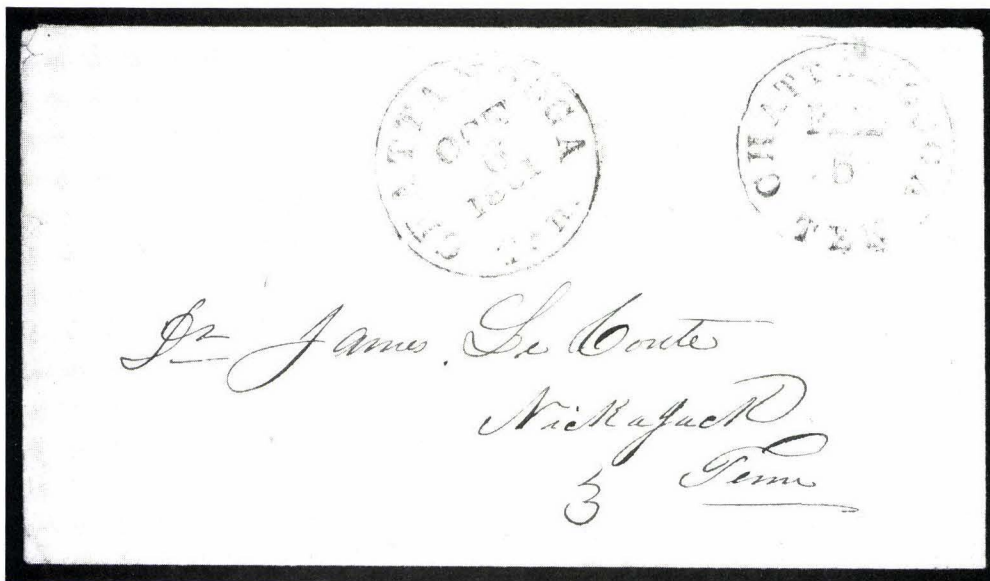 CHATTANOOGA
OCT
1861
CHATTANOOGA
PAID
5
TEN
Dr James. Le Conte
Nickajack
Tenn